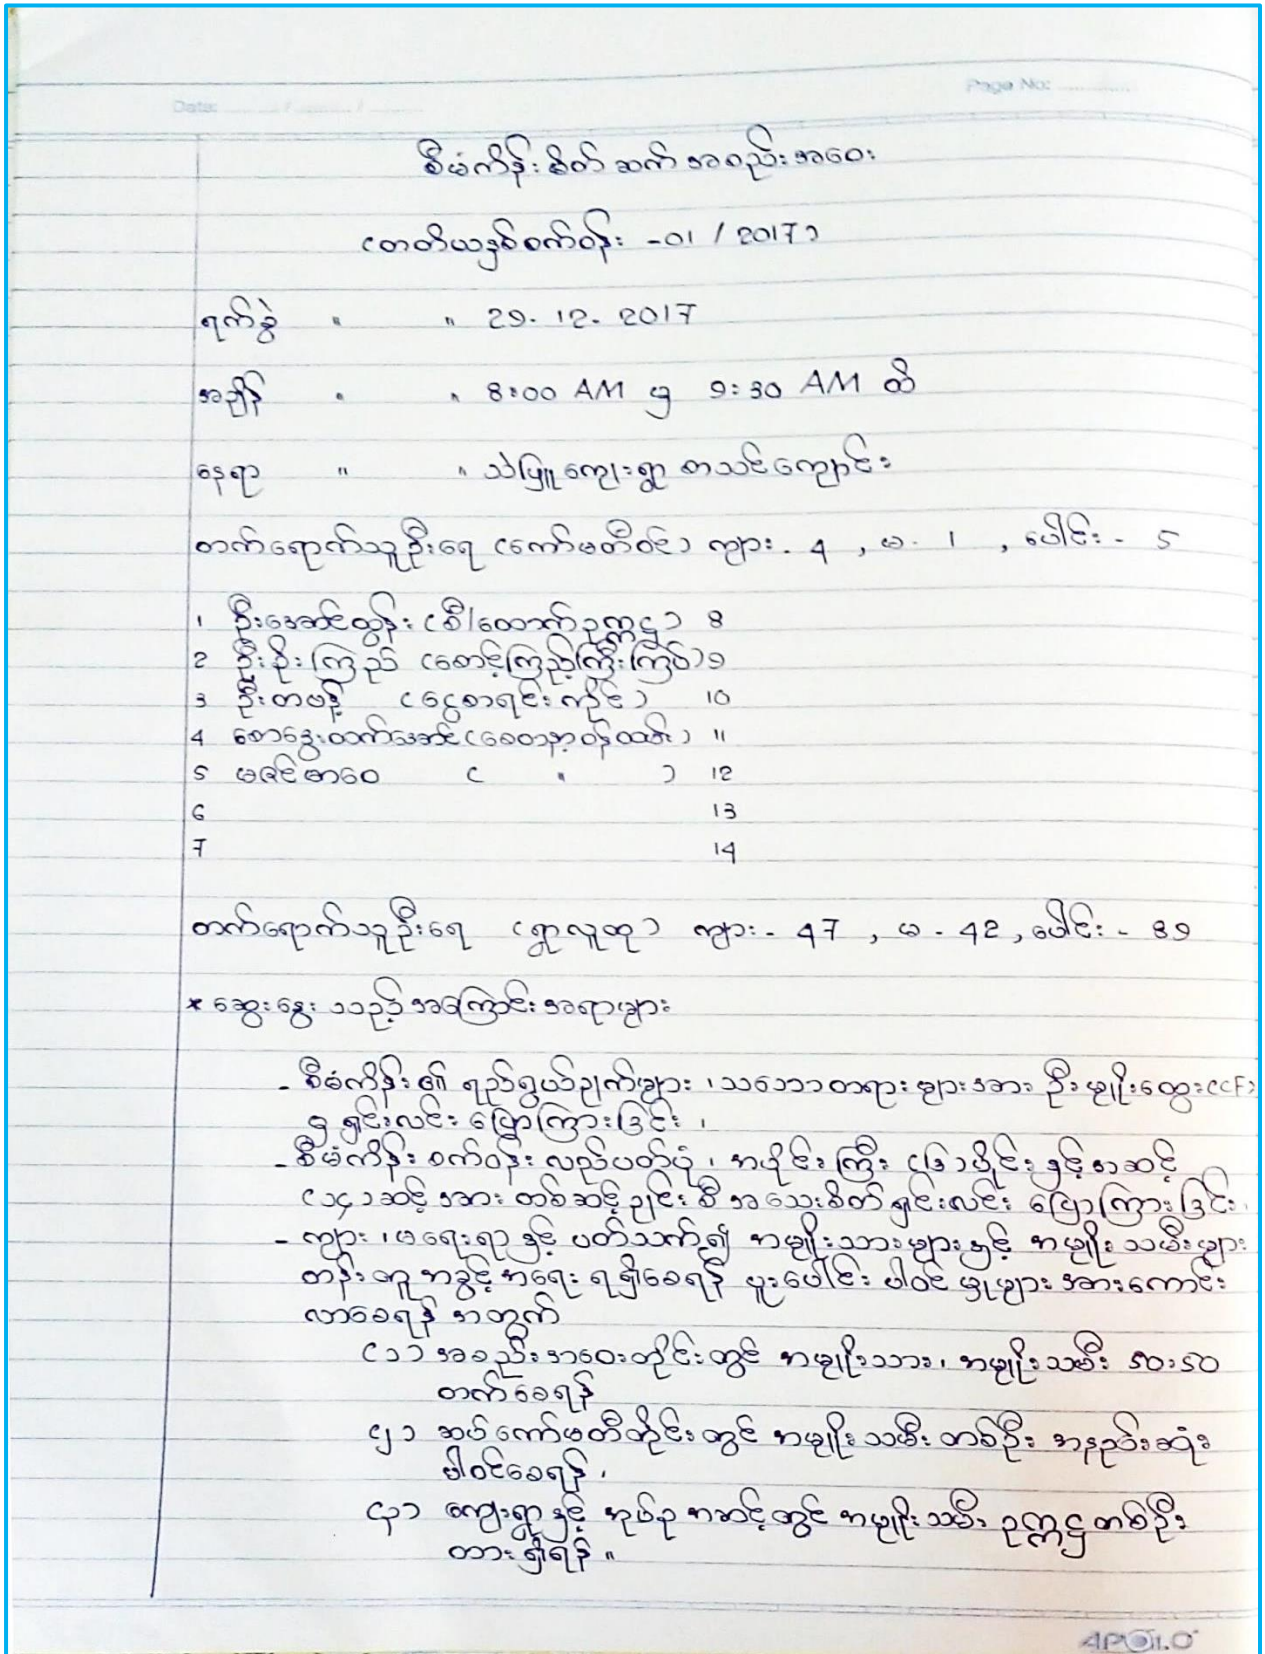 Page No: ............
Date: ....... / ....... / .......
စီမံကိန်းမိတ်ဆက်အစည်းအဝေး
(တတိယနှစ်စက်ဝန်း -01 / 2017)
ရက်စွဲ " " 29. 12. 2017
အချိန် " " 8:00 AM မှ 9:30 AM ထိ
နေရာ " " သဲဖြူကျေးရွာ စာသင်ကျောင်း
တက်ရောက်သူဦးရေ (ကော်မတီဝင်) ကျား - 4 , မ - 1 , ပေါင်း - 5
1 ဦးအောင်ထွန်း (စီ/ထောက်ဥက္ကဋ္ဌ) 8
2 ဦးဦးကြည် (စောင့်ကြည့်ကြီးကြပ်) 9
3 ဦးတမန့် (ငွေစာရင်းကိုင်) 10
4 စောဒွေးထက်အောင် (စေတနာ့ဝန်ထမ်း) 11
5 မဇင်မာဝေ ( " ) 12
6 13
7 14
တက်ရောက်သူဦးရေ (ရွာလူထု) ကျား - 47 , မ - 42 , ပေါင်း - 89
* ဆွေးနွေးသည့်အကြောင်းအရာများ
- စီမံကိန်း၏ ရည်ရွယ်ချက်များ ၊ သဘောတရားများအား ဦးမျိုးထွေး (CF)
မှ ရှင်းလင်းပြောကြားခြင်း ၊
- စီမံကိန်းစက်ဝန်းလည်ပတ်ပုံ ၊ အပိုင်းကြီး (၆) ပိုင်းနှင့် အဆင့်
(၁၄) ဆင့်အား တစ်ဆင့်ချင်းစီ အသေးစိတ်ရှင်းလင်း ပြောကြားခြင်း ၊
- ကျား ၊ မရေးရာနှင့် ပတ်သက်၍ အမျိုးသားများနှင့် အမျိုးသမီးများ
တန်းတူအခွင့်အရေး ရရှိစေရန် ပူးပေါင်းပါဝင်မှုများ အားကောင်း
လာစေရန်အတွက်
(၁) အစည်းအဝေးတိုင်းတွင် အမျိုးသား ၊ အမျိုးသမီး 50:50
တက်စေရန်
(၂) ဆပ်ကော်မတီတိုင်းတွင် အမျိုးသမီးတစ်ဦး အနည်းဆုံး
ပါဝင်စေရန် ၊
(၃) ကျေးရွာနှင့် အုပ်စုအဆင့်တွင် အမျိုးသမီး ဥက္ကဋ္ဌတစ်ဦး
ထားရှိရန် ။
APOLO